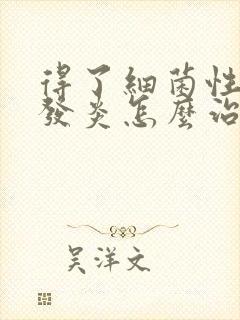 得了細菌性
發炎怎麼治
吳洋文